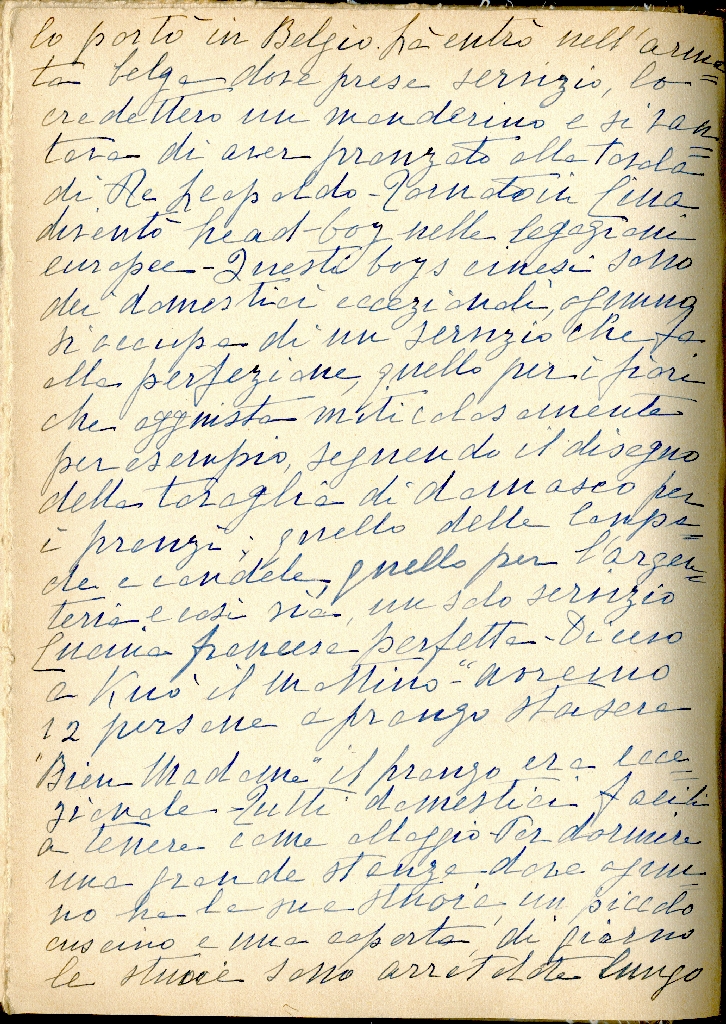 lo portò in Belgio. Là entrò nell'arma=
ta belga dove prese servizio, lo
credettero un manderino e si van=
tava di aver pranzato alla tavola
di Re Leopoldo - Tornato in Cina
diventò head-boy nelle legazioni
europee - Questi boys cinesi sono
dei domestici eccezionali, ognuno
si occupa di un servizio che fa
alla perfezione, quello per i fiori
che aggiusta miticolosamente
per esempio, seguendo il disegno
della tovaglia di damasco per
i pranzi; quello delle lampa=
de e candele, quello per l'argen=
teria e così via, un solo servizio
Cucina francese perfetta - Dicevo
a Kuò il mattino - "avremo
12 persone a pranzo stasera
"Bien Madame" il pranzo era ecce=
zionale - Tutti domestici facili
a tenere come alloggio - Per dormire
una grande stanza dove ognu=
no ha la sua stuoia, un piccolo
cuscino e una coperta, di giorno
le stuoie sono arrotolate lungo